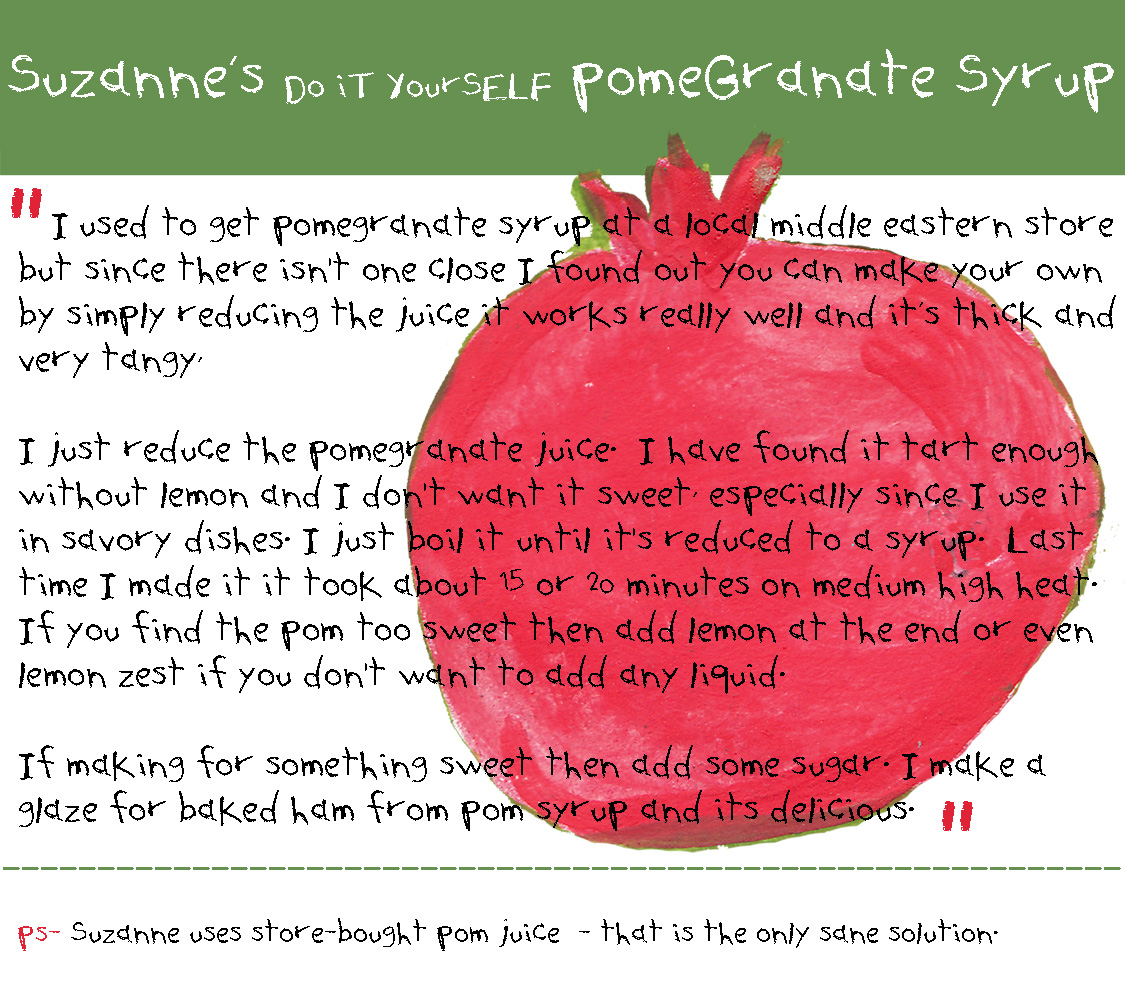 Suzanne's Do iT YourSELF PomeGranate Syrup
" I used to get pomegranate syrup at a local middle eastern store
but since there isn't one close I found out you can make your own
by simply reducing the juice it works really well and it's thick and
very tangy.
I just reduce the pomegranate juice. I have found it tart enough
without lemon and I don't want it sweet, especially since I use it
in savory dishes. I just boil it until it's reduced to a syrup. Last
time I made it it took about 15 or 20 minutes on medium high heat.
If you find the pom too sweet then add lemon at the end or even
lemon zest if you don't want to add any liquid.
If making for something sweet then add some sugar. I make a
glaze for baked ham from pom syrup and its delicious. "
ps- Suzanne uses store-bought pom juice - that is the only sane solution.